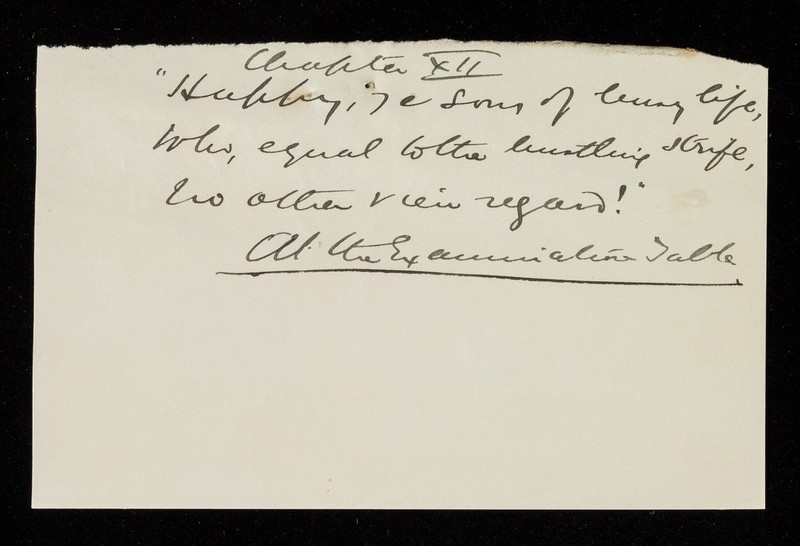 Chapter XII
"Happy, ye sons of busy life,
Who, equal to the bustling strife,
No other view regard!"
At the Examination Table